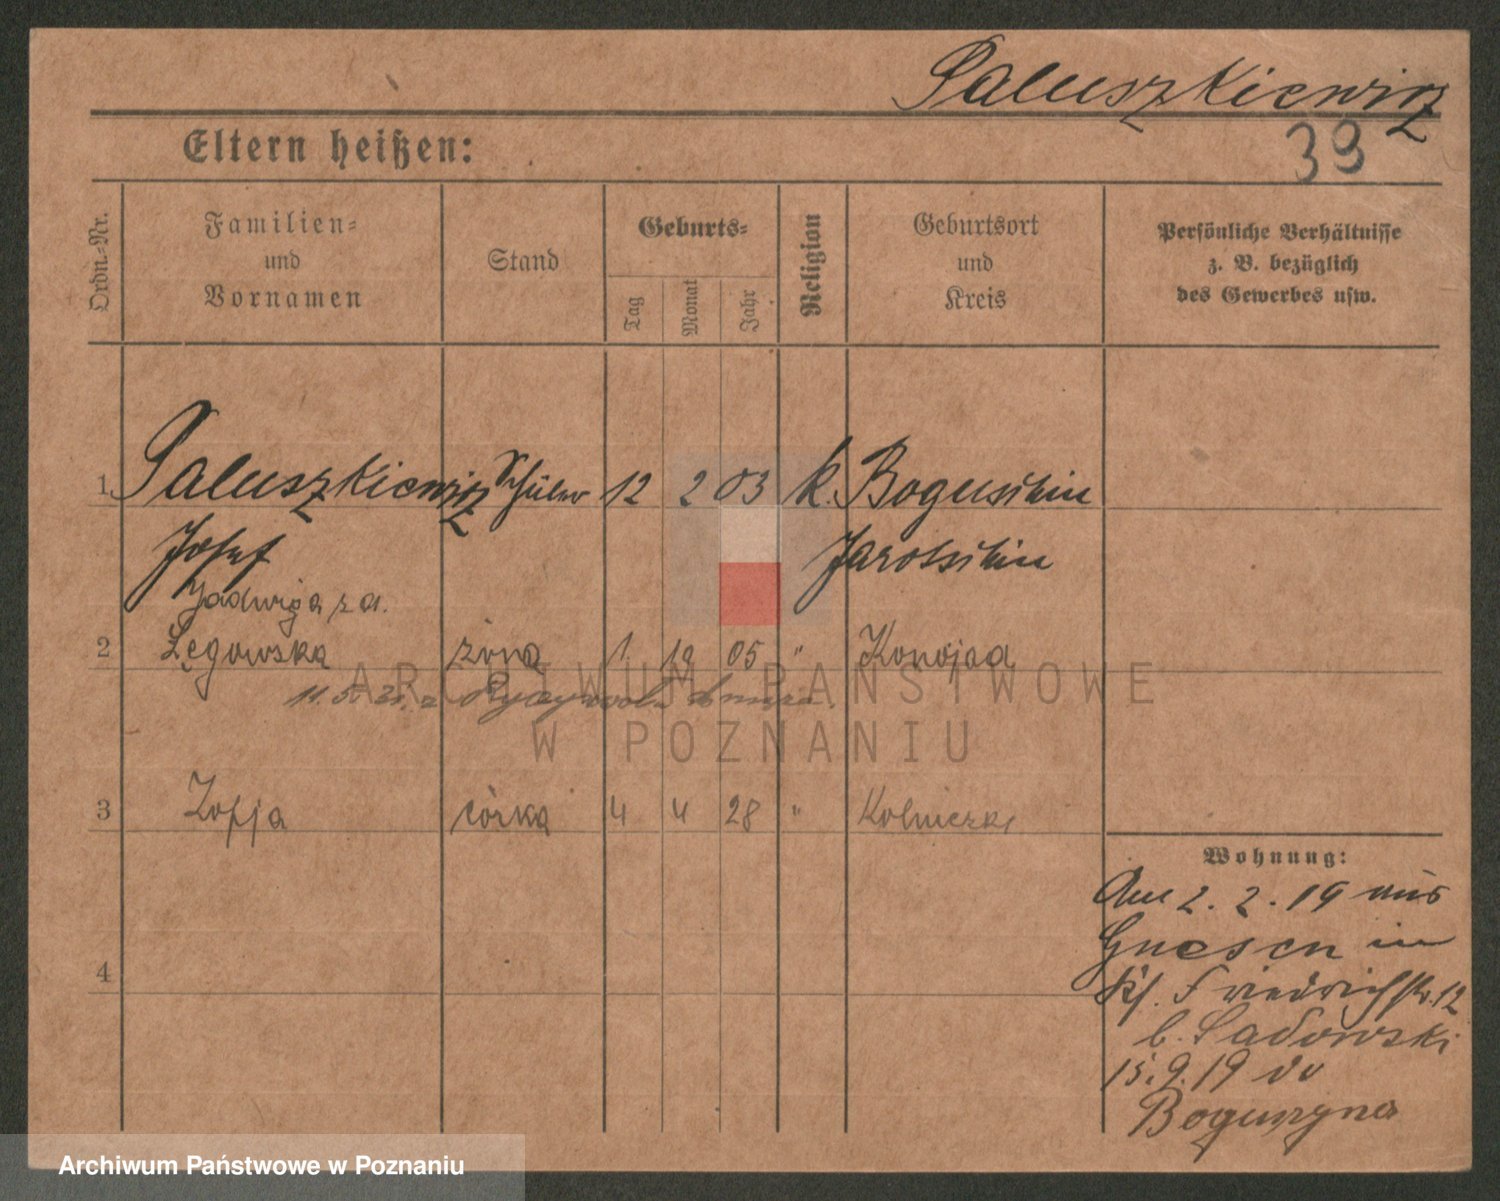 Paluszkiewicz
39
Eltern heißen:
Ordn.-Nr.
Familien-
und
Vornamen
Stand
Geburts-
Tag
Monat
Jahr
Religion
Geburtsort
und
Kreis
Persönliche Verhältnisse
z. B. bezüglich
des Gewerbes usw.
1 Paluszkiewicz Schüler 12 2 03 k. Boguschin
Josef Jarotschin
Jadwiga z d.
2 Łęgowska żona 1 10 05 " Konojad
11. 5. 21. z
3 Zofja córka 4 4 28 " Kolniczki
4
Wohnung:
Am 2. 2. 19 aus
Gnesen in
Kl. Friedrichstr. 12
b. Sadowski
15. 9. 19 do
Boguszyna
ARCHIWUM PAŃSTWOWE
W POZNANIU
Archiwum Państwowe w Poznaniu